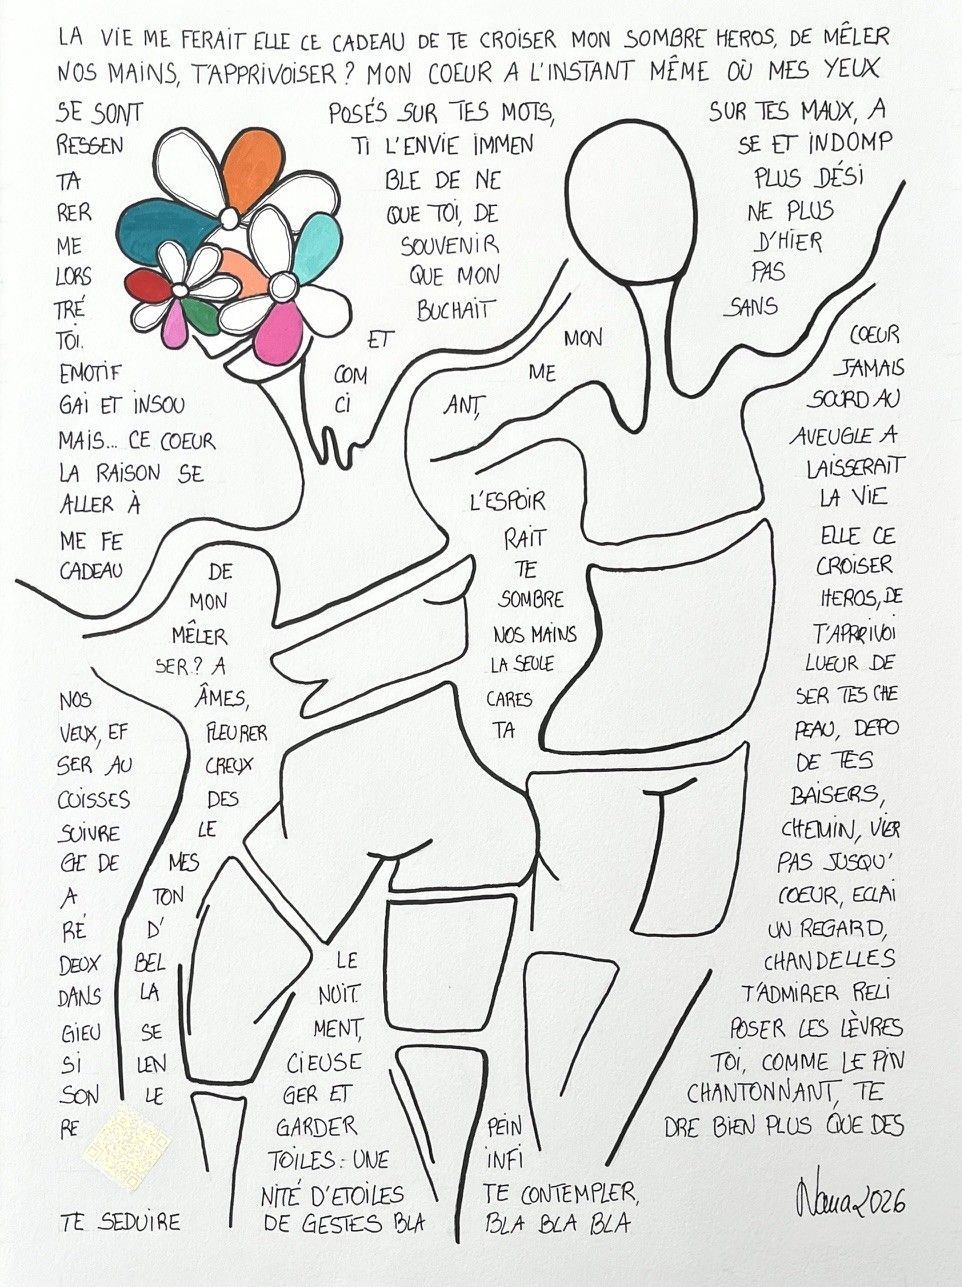 LA VIE ME FERAIT ELLE CE CADEAU DE TE CROISER MON SOMBRE HEROS, DE MÊLER
NOS MAINS, T'APPRIVOISER ? MON COEUR A L'INSTANT MÊME OÙ MES YEUX
SE SONT POSÉS SUR TES MOTS, SUR TES MAUX, A
RESSEN TI L'ENVIE IMMEN SE ET INDOMP
TA BLE DE NE PLUS DÉSI
RER QUE TOI, DE NE PLUS
ME SOUVENIR D'HIER
LORS QUE MON PAS
TRÉ BUCHAIT SANS
TOI. ET MON COEUR
EMOTIF COM ME JAMAIS
GAI ET INSOU CI ANT, SOURD AU
MAIS... CE COEUR AVEUGLE A
LA RAISON SE LAISSERAIT
ALLER À L'ESPOIR LA VIE
ME FE RAIT ELLE CE
CADEAU DE TE CROISER
MON SOMBRE HEROS, DE
MÊLER NOS MAINS T'APPRIVOI
SER ? A LA SEULE LUEUR DE
NOS ÂMES, CARES SER TES CHE
VEUX, EF FLEURER TA PEAU, DEPO
SER AU CREUX DE TES
CUISSES DES BAISERS,
SUIVRE LE CHEMIN, VIER
GE DE MES PAS JUSQU'
A TON COEUR, ECLAI
RÉ D' UN REGARD,
DEUX BEL LE CHANDELLES
DANS LA NUIT. T'ADMIRER RELI
GIEU SE MENT, POSER LES LÈVRES
SI LEN CIEUSE TOI, COMME LE PIN
SON LE GER ET CHANTONNANT, TE
RE GARDER PEIN DRE BIEN PLUS QUE DES
TOILES : UNE INFI
NITÉ D'ETOILES TE CONTEMPLER,
TE SEDUIRE DE GESTES BLA BLA BLA BLA
Nana 2026